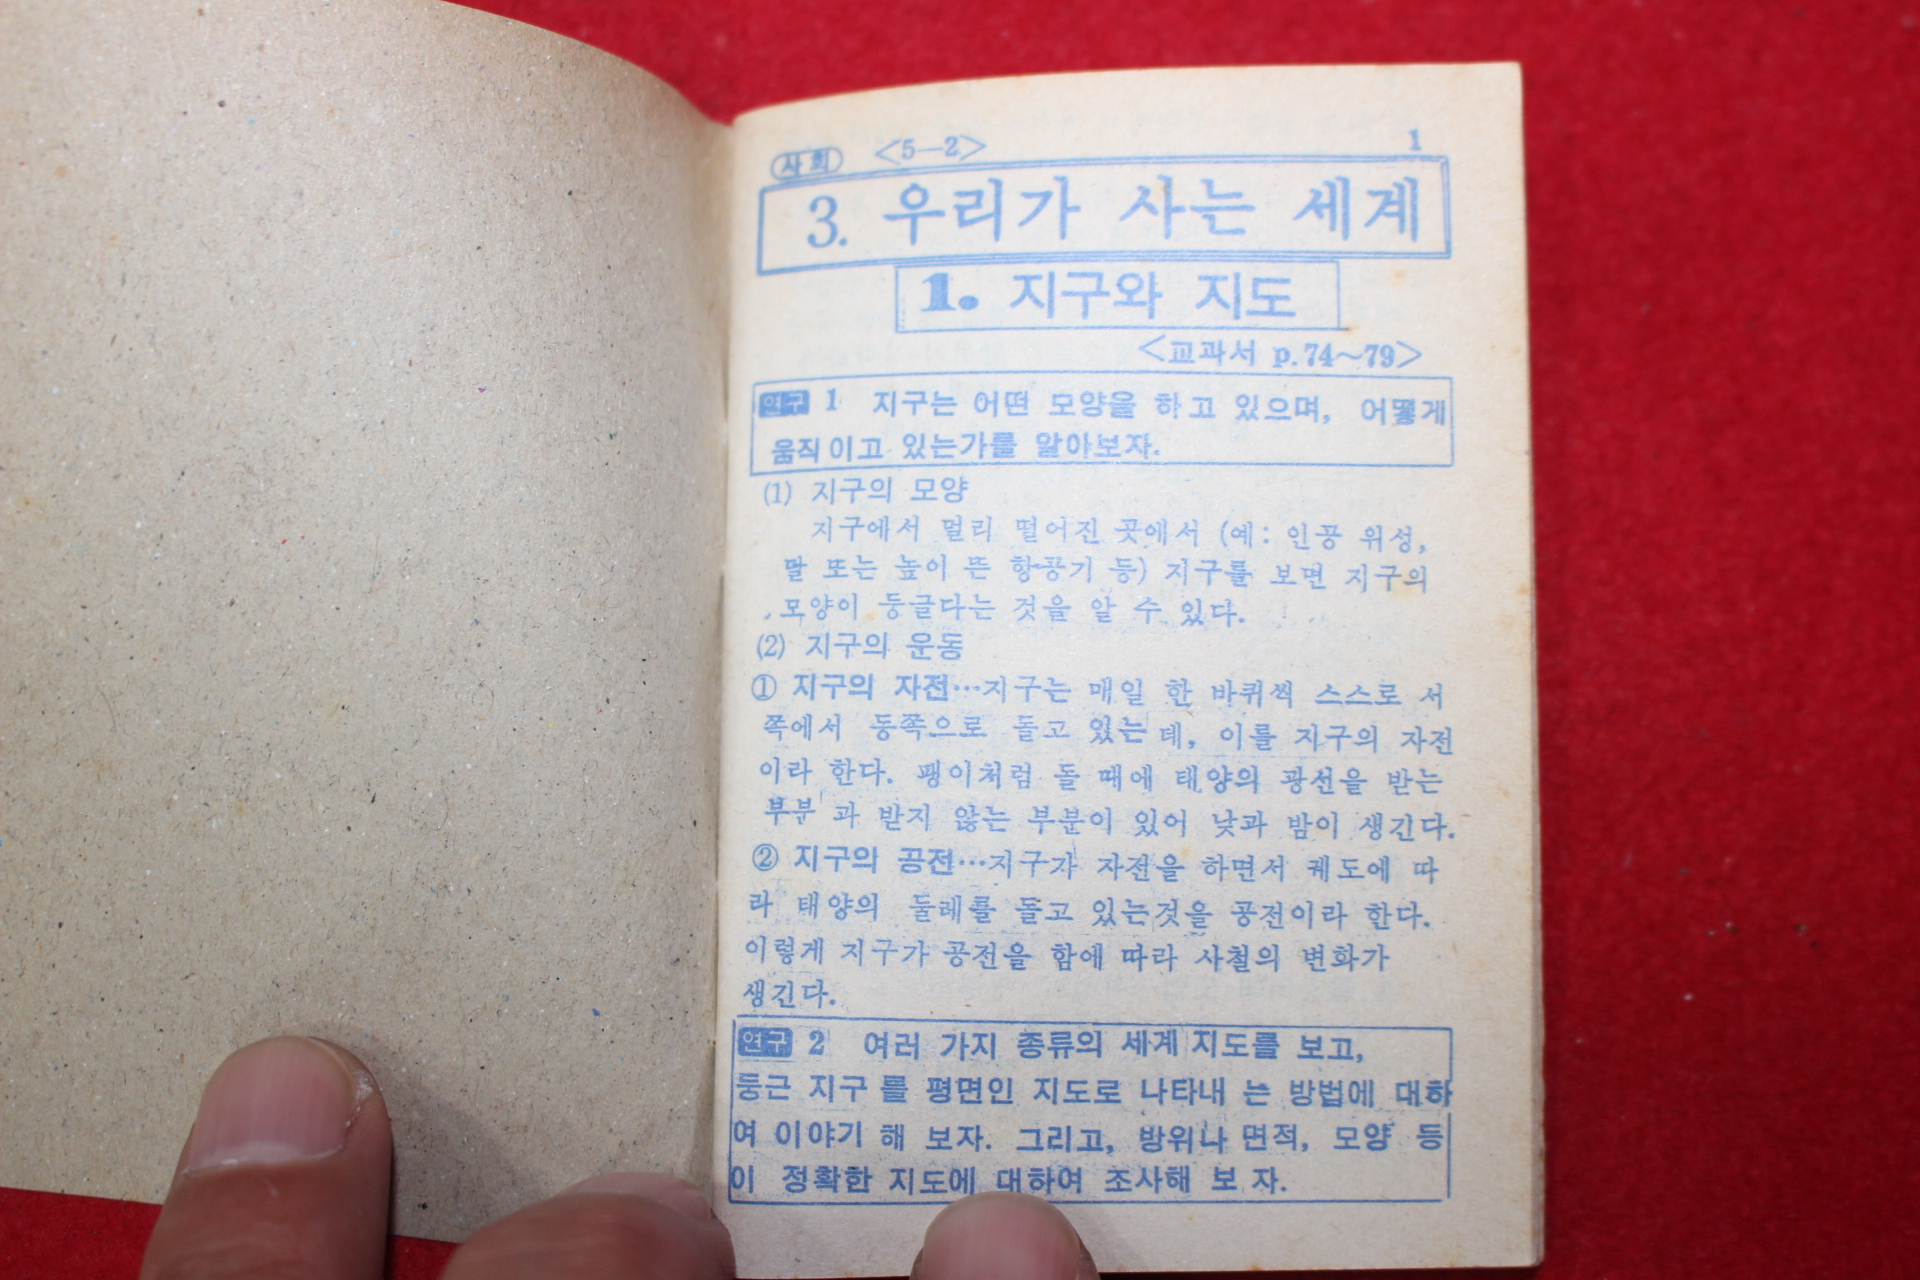 사회 <5—2> 1
3. 우리가 사는 세계
1. 지구와 지도
<교과서 p.74~79>
연구 1 지구는 어떤 모양을 하고 있으며, 어떻게
움직이고 있는가를 알아보자.
(1) 지구의 모양
지구에서 멀리 떨어진 곳에서 (예: 인공 위성,
달 또는 높이 뜬 항공기 등) 지구를 보면 지구의
모양이 둥글다는 것을 알 수 있다.
(2) 지구의 운동
① 지구의 자전…지구는 매일 한 바퀴씩 스스로 서
쪽에서 동쪽으로 돌고 있는데, 이를 지구의 자전
이라 한다. 팽이처럼 돌 때에 태양의 광선을 받는
부분과 받지 않는 부분이 있어 낮과 밤이 생긴다.
② 지구의 공전…지구가 자전을 하면서 궤도에 따
라 태양의 둘레를 돌고 있는것을 공전이라 한다.
이렇게 지구가 공전을 함에 따라 사철의 변화가
생긴다.
연구 2 여러 가지 종류의 세계 지도를 보고,
둥근 지구를 평면인 지도로 나타내는 방법에 대하
여 이야기해 보자. 그리고, 방위나 면적, 모양 등
이 정확한 지도에 대하여 조사해 보자.